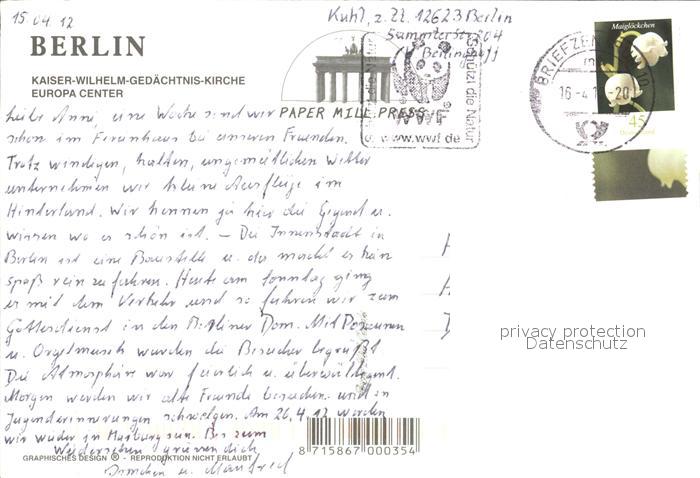 15.04.12
Kuhl, z. Zt. 12623 Berlin
BERLIN
KAISER-WILHELM-GEDÄCHTNIS-KIRCHE
EUROPA CENTER
PAPER MILL PRESS
WWF
www.wwf.de
Schützt die Natur
BRIEFZEN
16-4.1 -20
Maiglöckchen
45
Liebe Anni, eine Woche sind wir
schon im Ferienhaus bei unseren Freunden.
Trotz windigen, kalten, ungemütlichen Wetter
unternehmen wir kleine Ausflüge im
Hinterland. Wir kennen ja hier die Gegend u.
wissen wo es schön ist. – Die Innenstadt in
Berlin ist eine Baustelle u. da macht es kein
spaß rein zu fahren. Heute am Sonntag ging
es mit dem Verkehr und so fuhren wir zum
Gottesdienst in den Berliner Dom. Mit Posaunen
u. Orgelmusik wurden die Besucher begrüßt
Die Atmosphäre war feierlich u. überwältigend.
Morgen werden wir alte Freunde besuchen und in
Jugenderinnerungen schwelgen. Am 26.4.12 werden
wir wieder in Marburg sein. Bis zum
Wiedersehen grüßen dich
u. Manfred
GRAPHISCHES DESIGN ® - REPRODUKTION NICHT ERLAUBT
8 715867 000354
privacy protection
Datenschutz